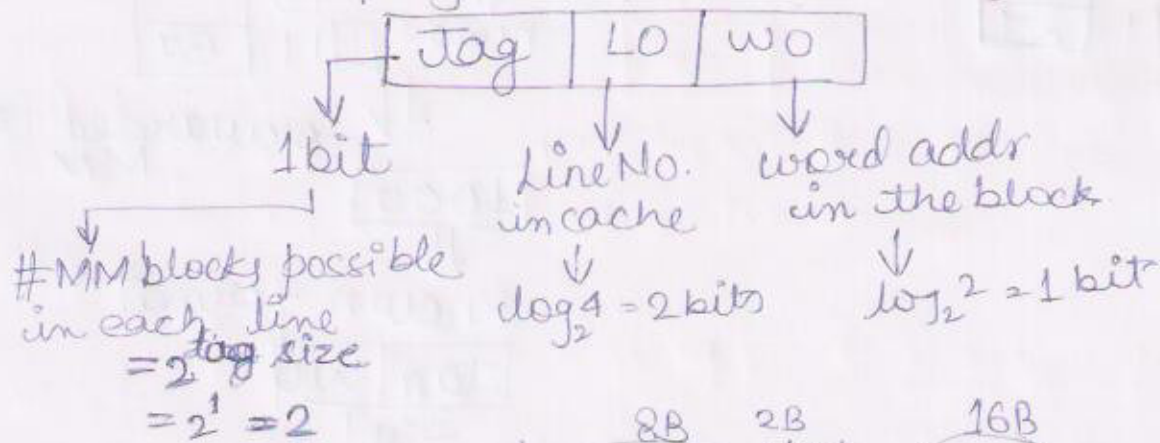 Tag | LO | WO
1bit
Line No.
in cache
word addr
in the block
#MM blocks possible
in each line
= 2^tag size
= 2^1 = 2
log₂4 = 2 bits
log₂2 = 1 bit
8B 2B 16B